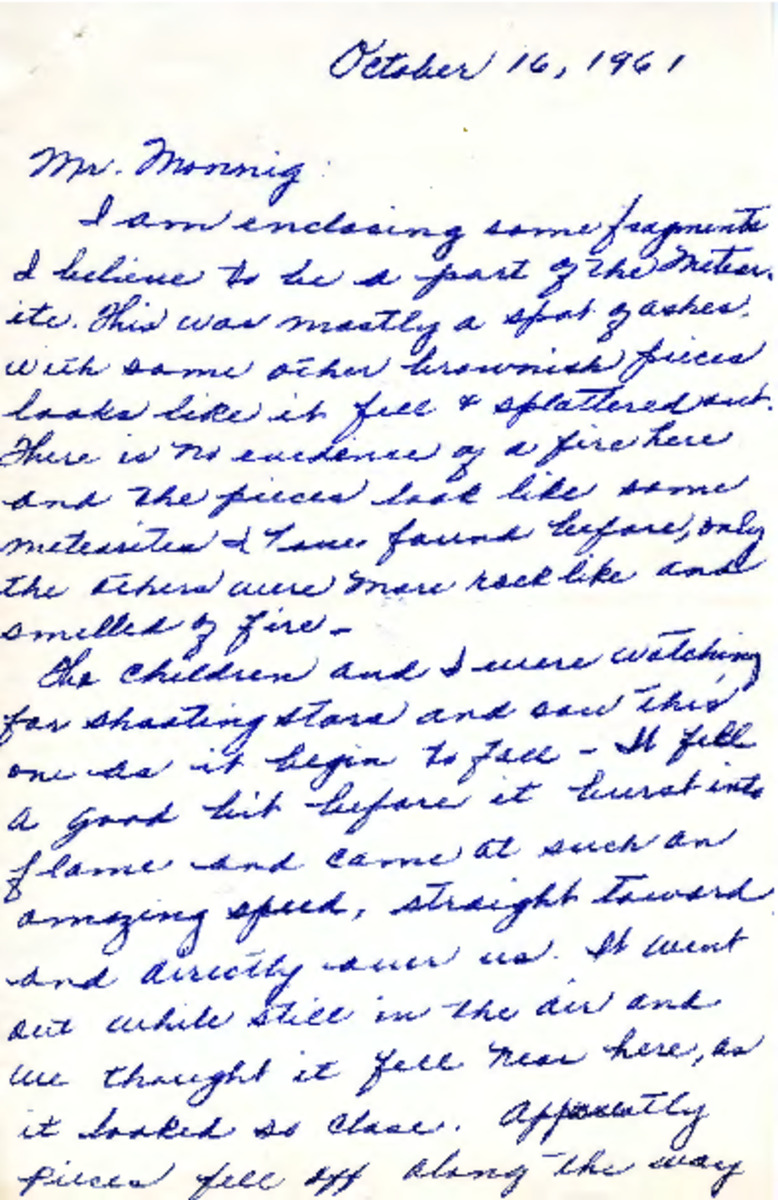 October 16, 1961
Mr. Monnig:
I am enclosing some fragments
I believe to be a part of the Meteor-
ite. This was mostly a spot of ashes.
with some other brownish pieces
looks like it fell & splattered out.
There is no evidence of a fire here
and the pieces look like some
meteorites I have found before, only
the others were more rock like and
smelled of fire -
The children and I were watching
for shooting stars and saw this
one as it begin to fall - It fell
a good bit before it burst into
flame and came at such an
amazing speed, straight toward
and directly over us. It went
out while still in the air and
we thought it fell near here, as
it looked so close. Apparently
pieces fell off along the way